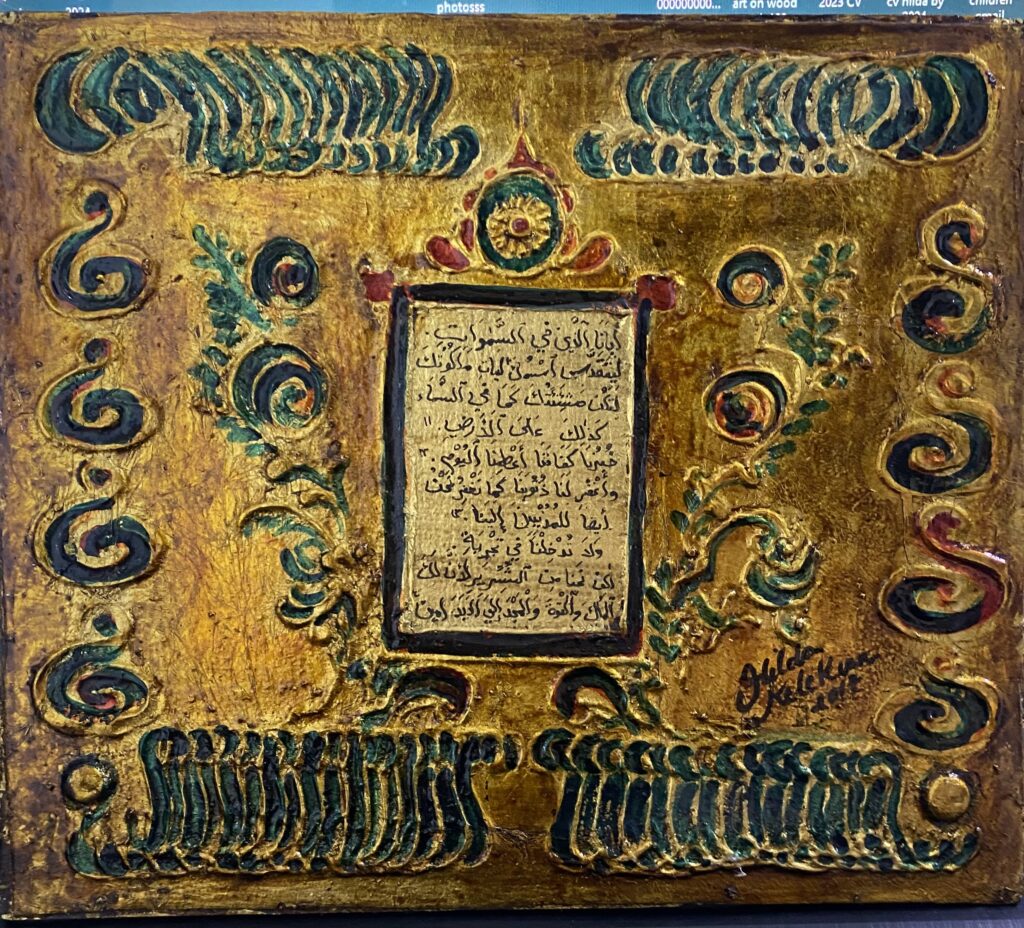 2024
photosss
000000000...
art on wood
2023 CV
cv hilda by
2024
children
gmail
أبانا الَّذي في السَّموات
ليتقدس اسمك ليأت ملكوتك
لتكن مشيئتك كما في السماء
كذلك على الأرض
خبزنا كفافنا أعطنا اليوم
وأغفر لنا ذنوبنا كما نغفر نحن
أيضا للمذنبين إلينا
ولا تدخلنا في تجربة
لكن نجنا من الشرير لأن لك
الملك والقوة والمجد إلى الأبد امين
Hilda
KeleKian
2017